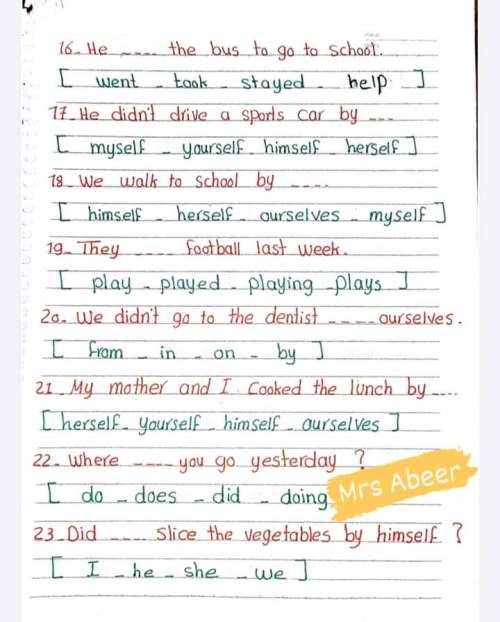 16- He ---- the bus to go to school.
[ went - took - stayed - help ]
17- He didn't drive a sports car by ---
[ myself - yourself - himself - herself ]
18- We walk to school by ----.
[ himself - herself - ourselves - myself ]
19- They ---- football last week.
[ play - played - playing - plays ]
20- We didn't go to the dentist ---- ourselves.
[ from - in - on - by ]
21- My mother and I Cooked the lunch by ----
[ herself - yourself - himself - ourselves ]
22- Where ---- you go yesterday ?
[ do - does - did - doing
Mrs Abeer
23- Did ---- slice the vegetables by himself ?
[ I - he - she - we ]